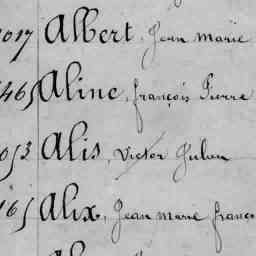 017 Albert, Jean Marie
465 Aline, François Pierre
053 Alis, Victor Julien
165 Alix, Jean Marie Franço